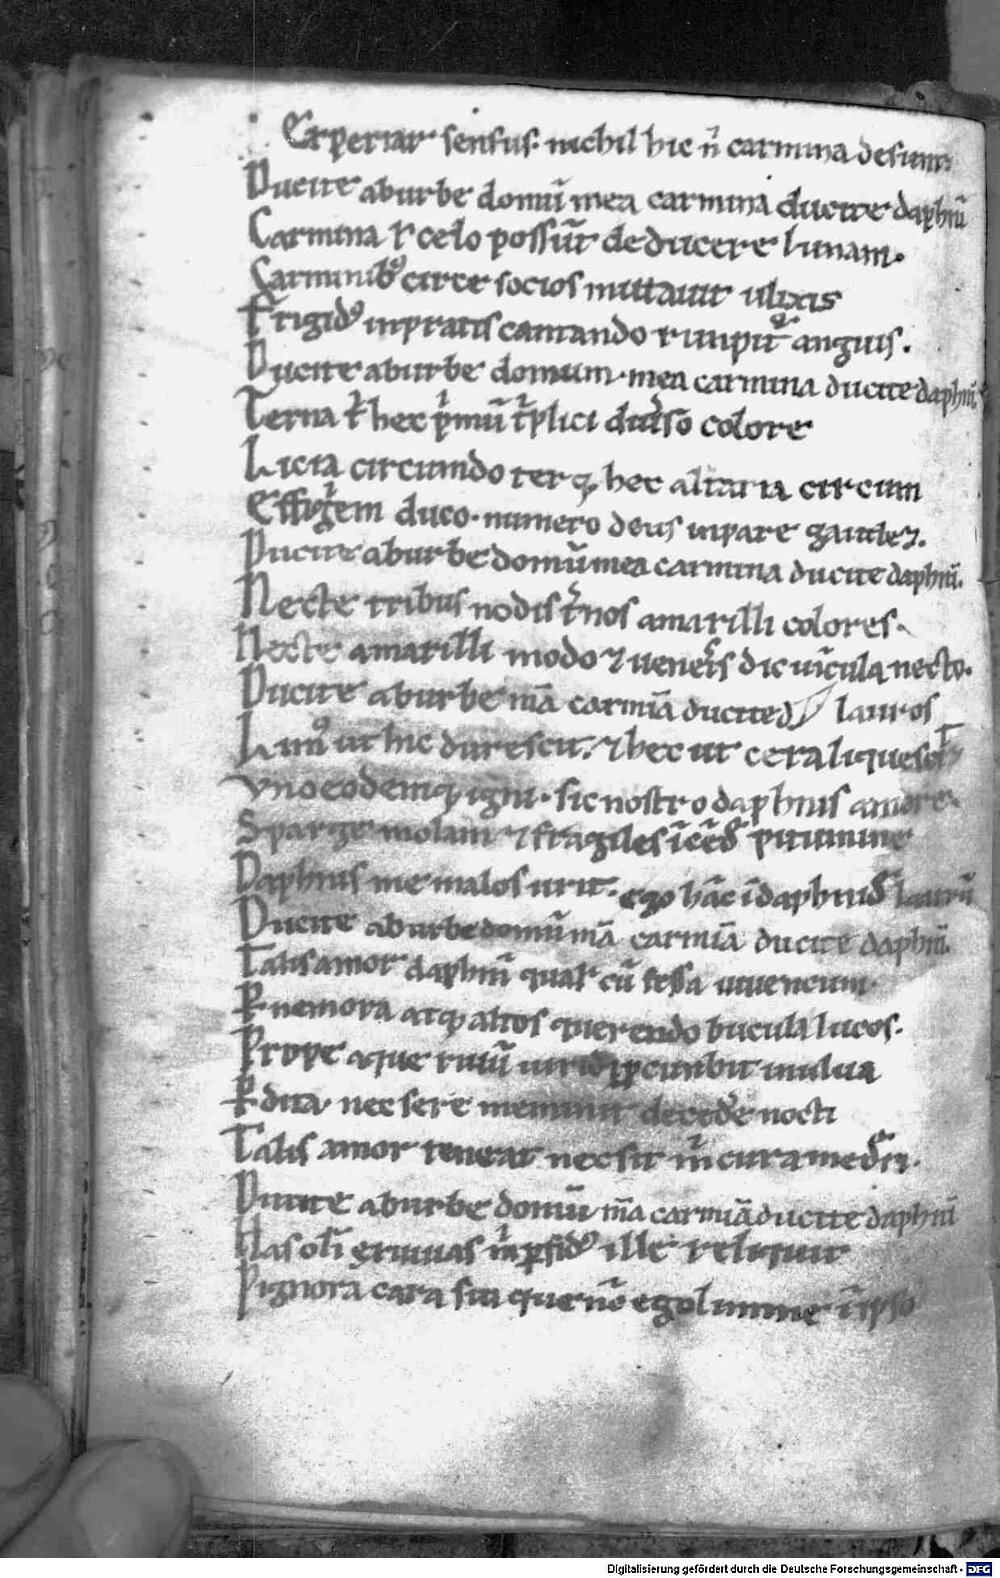 Experiar sensus. nichil hic n̄ carmina desunt
Ducite aburbe domū mea carmina ducite daphnī
Carmina ł celo possūt deducere lunam.
Carminibꝰ circe socios muttauit ulixis
Frigidꝰ inpratis cantando rumpit᷑ anguis.
Ducite aburbe domum. mea carmina ducite daphnī
Terna t̓ hec p̓mū t̓plici diūso colore
Licia circumdo terqꝫ hec altaria circum
Effigiem duco. numero deus inpare gaudet.
Ducite aburbe domū mea carmina ducite daphnī.
Necte tribus nodis t̓nos amarilli colores.
Necte amarilli modo ⁊ ueneris dic uīcula necto.
Ducite aburbe m̄a carmīa ducite d
lauros
Limꝰ ut hic durescit. ⁊ hec ut cera liquescit
Vno eodemqꝫ igni. sic nostro daphnis amore.
Sparge molam ⁊ fragiles īcēde pitumine
Daphnis me malos urit. ego hāc ī daphnidē laurū
Ducite aburbe domū m̄a carmīa ducite daphnī.
Talis amor daphnī qualis cū fessa iuuencum.
Ꝑ nemora atqꝫ altos querendo bucula lucos.
Prope aque riuū uiridi ꝓcumbit inulua
Ꝑdita. nec sere meminit decedere nocti
Talis amor teneat nec sit m̓ cura mederi.
Ducite aburbe domū m̄a carmīa ducite daphnī
Has olī exuuias m̓ ꝑfidꝰ ille reliquit
Pignora cara sui que nū̄c ego limine ī ipso
Digitalisierung gefördert durch die Deutsche Forschungsgemeinschaft - DFG